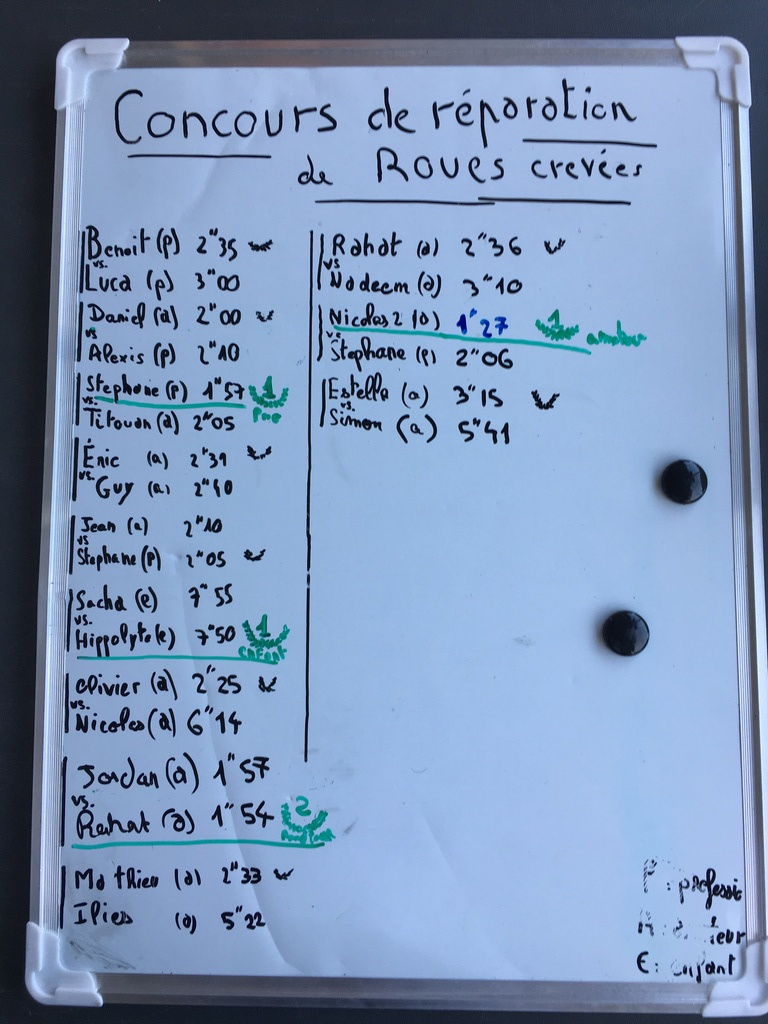 Concours de réparation
de Roues crevées
Benoit (p) 2"35
vs.
Luca (p) 3"00
Daniel (a) 2"00
vs
Alexis (p) 2"10
Stephane (p) 1"57 1
Pro
vs.
Titouan (a) 2"05
Éric (a) 2"31
vs.
Guy (a) 2"40
Jean (a) 2"10
vs
Stephane (p) 2"05
Sacha (e) 7"55
vs.
Hippolyte (e) 7"50 1
enfant
Olivier (a) 2"25
vs.
Nicolas (a) 6"14
Jordan (a) 1"57
vs.
Rahat (a) 1"54 2
Mathieu (a) 2"33
Ilies (a) 5"22
Rahat (a) 2"36
vs
Nadeem (a) 3"10
Nicolas 2 (a) 1"27 1 amateur
vs
Stephane (p) 2"06
Estelle (a) 3"15
vs.
Simon (a) 5"41
P: professio
E: enfant